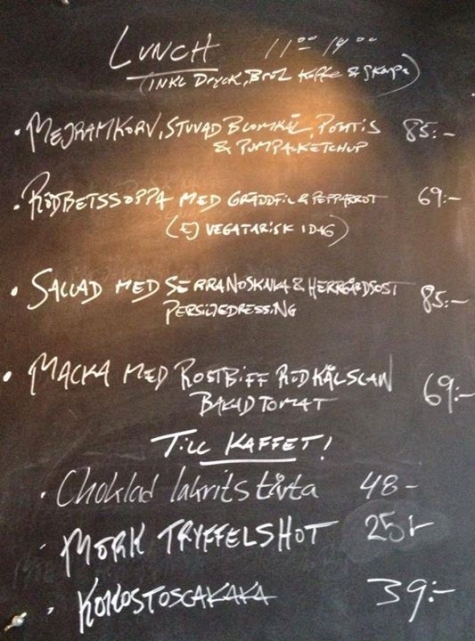 LUNCH 11⁰⁰ 14⁰⁰
(INKL DRYCK, BRÖD, KAFFE & SKORPA)
• MEJRAMKORV, STUVAD BLOMKÅL, POTATIS 85:-
& PUMPAKETCHUP
• RÖDBETSSOPPA MED GRÄDDFIL & PEPPARROT 69:-
(EJ VEGATARISK IDAG)
• SALLAD MED SERRANOSKINKA & HERRGÅRDSOST 85:-
PERSILJEDRESSING
• MACKA MED ROSTBIFF RÖDKÅLSLAW 69:-
BAKAD TOMAT
TILL KAFFET!
• Choklad lakritstårta 48-
• MÖRK TRYFFELSHOT 25:-
• KOKOSTOSCAKAKA 39:-